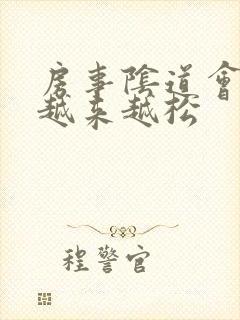 房事陰道會
越來越松
程警官